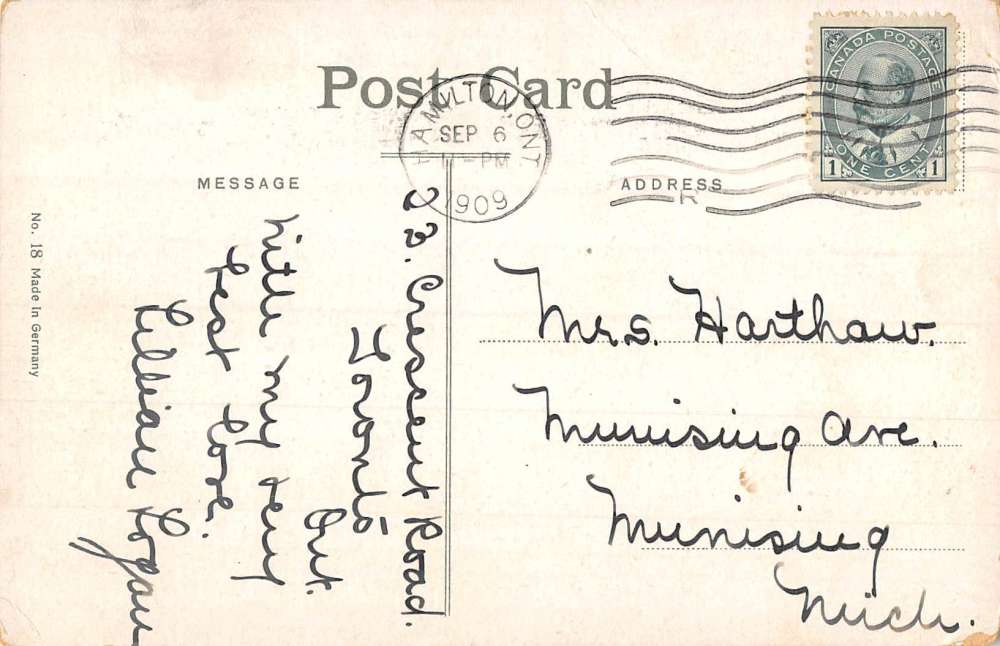 Post Card
HAMILTON, ONT.
SEP 6
11-PM
1909
CANADA POSTAGE
ONE CENT
1 1
MESSAGE
ADDRESS
R
23. Crescent Road.
Toronto
Ont.
With my very
best love.
Lillian Logan
Mrs. Harthaw.
Munising Ave.
Munising
Mich.
No. 18 Made in Germany